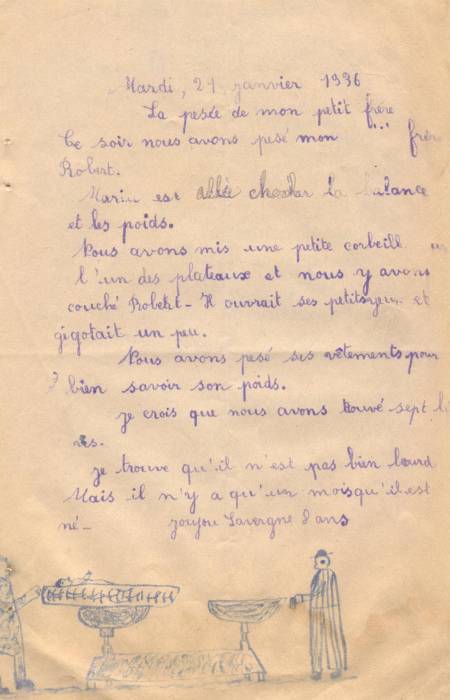 Mardi, 21 janvier 1936
La pesée de mon petit frère
Ce soir nous avons pesé mon ... frère
Robert.
Maria est allée chercher la balance
et les poids.
Nous avons mis une petite corbeille
l'un des plateaux et nous y avons
couché Robert – Il ouvrait ses petits yeux et
gigotait un peu.
Nous avons pesé ses vêtements pour
bien savoir son poids.
je crois que nous avons trouvé sept li
res.
je trouve qu'il n'est pas bien lourd
Mais il n'y a qu'un mois qu'il est
né – Lavergne 8 ans